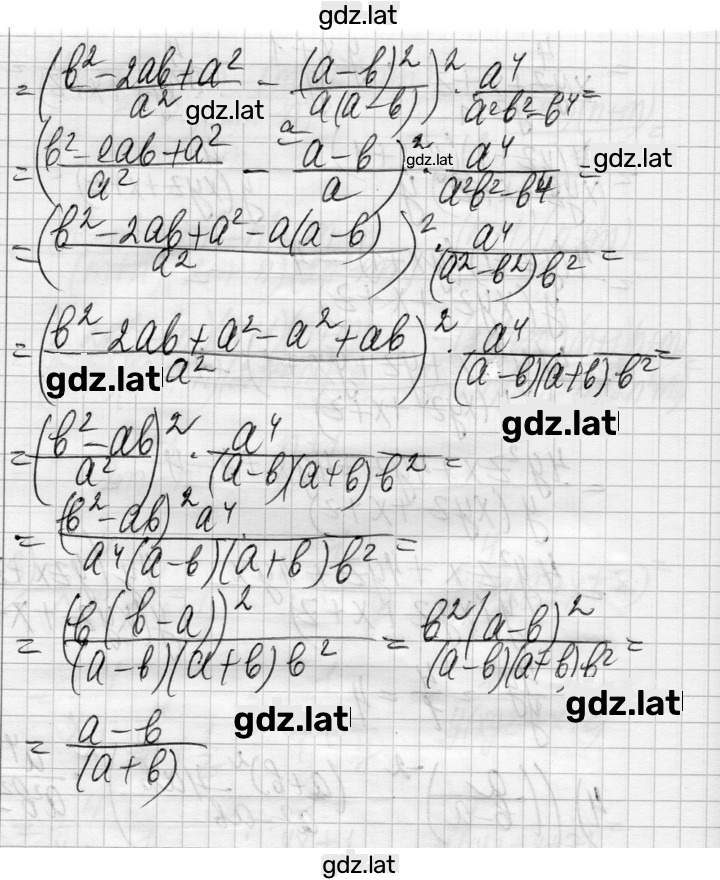 gdz.lat
= ( (b² − 2ab + a²)/a² − (a − b)²/(a(a − b)) )² · a⁴/(a²b² − b⁴) =
gdz.lat
= ( (b² − 2ab + a²)/a² − ᵃ (a − b)/a )² · a⁴/(a²b² − b⁴) =
gdz.lat gdz.lat
= ( (b² − 2ab + a² − a(a − b))/a² )² · a⁴/((a² − b²)b²) =
= ( (b² − 2ab + a² − a² + ab)/a² )² · a⁴/((a − b)(a + b)b²) =
gdz.lat
gdz.lat
= ( (b² − ab)/a² )² · a⁴/((a − b)(a + b)b²) =
= (b² − ab)²a⁴/(a⁴(a − b)(a + b)b²) =
= (b(b − a))²/((a − b)(a + b)b²) = b²(a − b)²/((a − b)(a + b)b²) =
gdz.lat
gdz.lat
= (a − b)/(a + b)
gdz.lat